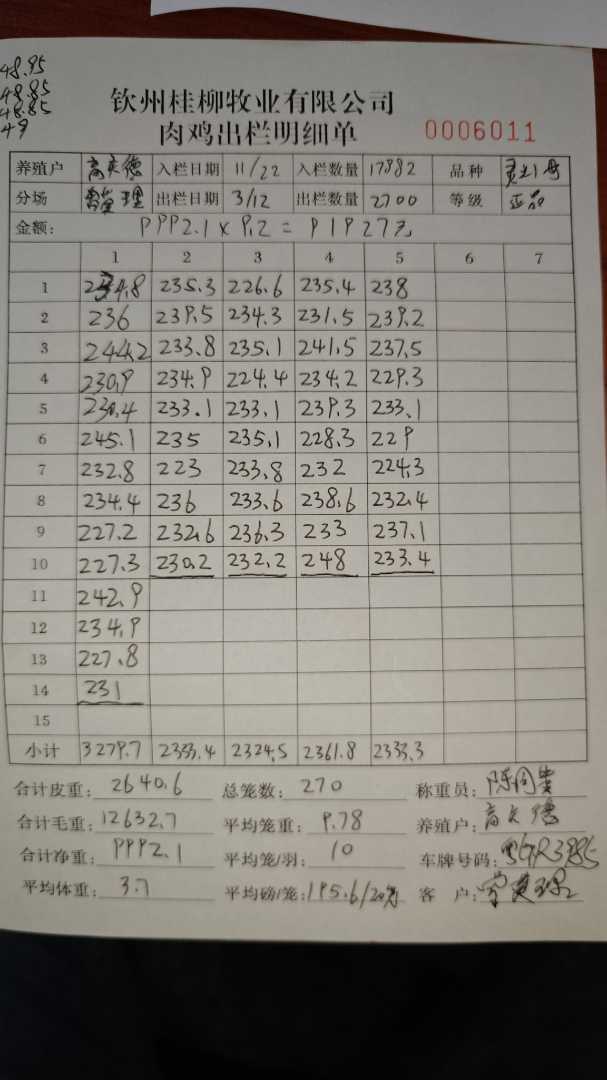 48.95
48.85
48.85
49
钦州桂柳牧业有限公司
肉鸡出栏明细单 0006011
养殖户 入栏日期 11/22 入栏数量 17882 品种
分场 管理 出栏日期 3/12 出栏数量 2700 等级 正品
金额: 9992.1 x 9.2 = 91927元
1 2 3 4 5 6 7
1 234.8 235.3 226.6 235.4 238
2 236 239.5 234.3 231.5 239.2
3 244.2 233.8 235.1 241.5 237.5
4 230.9 234.9 224.4 234.2 229.3
5 230.4 233.1 233.1 239.3 233.1
6 245.1 235 235.1 228.3 229
7 232.8 223 233.8 232 224.3
8 234.4 236 233.6 238.6 232.4
9 227.2 232.6 236.3 233 237.1
10 227.3 230.2 232.2 248 233.4
11 242.9
12 234.9
13 227.8
14 231
15
小计 3279.7 2333.4 2324.5 2361.8 2333.3
合计皮重: 2640.6 总笼数: 270 称重员:
合计毛重: 12632.7 平均笼重: 9.78 养殖户:
合计净重: 9992.1 平均笼/羽: 10 车牌号码:
平均体重: 3.7 平均磅/笼: 195.6/20 客 户: